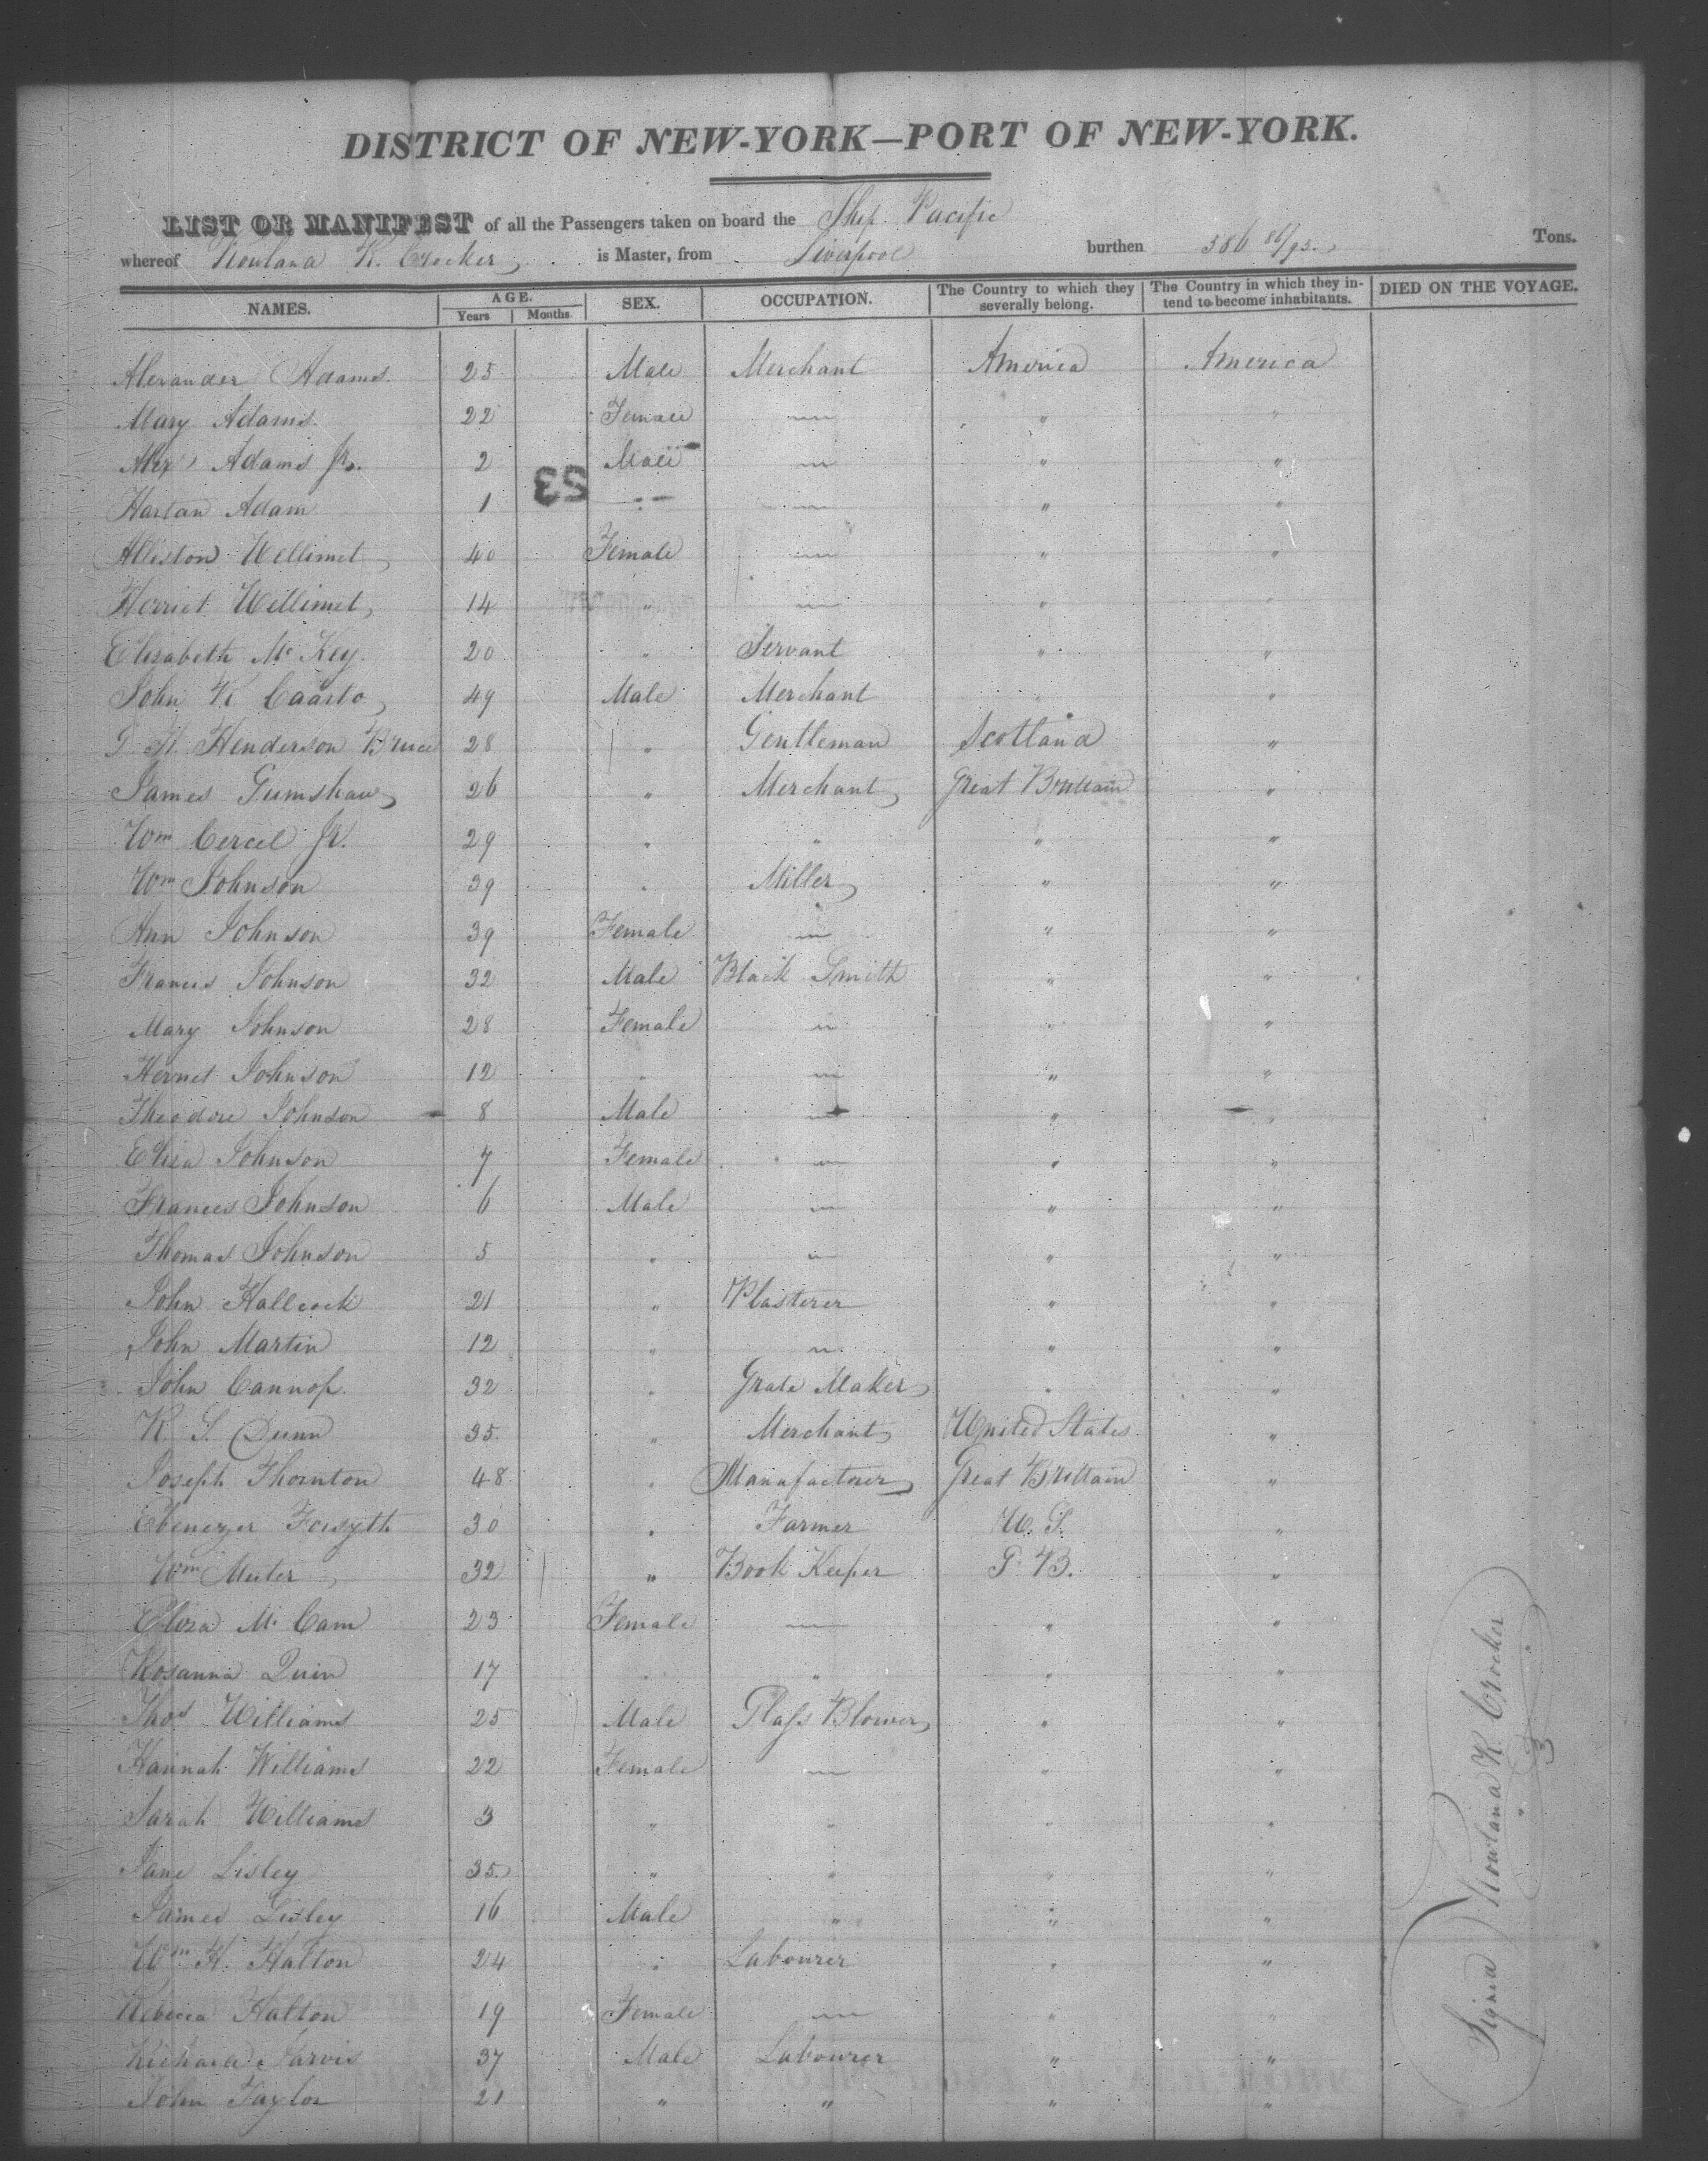 DISTRICT OF NEW-YORK—PORT OF NEW-YORK.
LIST OR MANIFEST of all the Passengers taken on board the Ship Pacific
whereof Rowland R. Crocker is Master, from Liverpool burthen 586 86/95 Tons.
NAMES. AGE. Years Months SEX. OCCUPATION. The Country to which they severally belong. The Country in which they intend to become inhabitants. DIED ON THE VOYAGE.
Alexander Adams 25 Male Merchant America America
Mary Adams 22 Female — " "
Alexr Adams Jr. 2 Male — " "
Harlan Adam 1 " — " "
53
Alliston Willimet 40 Female — " "
Harriet Willimet 14 " — " "
Elizabeth Mc Key 20 " Servant " "
John R 49 Male Merchant " "
G H. Henderson Bruce 28 " Gentleman Scotland "
James Gumshaw 26 " Merchant Great Brittain "
Wm Cercel Jr. 29 " " " "
Wm Johnson 39 " Miller " "
Ann Johnson 39 Female — " "
Francis Johnson 32 Male Black Smith " "
Mary Johnson 28 Female " " "
Harriet Johnson 12 " — " "
Theodore Johnson 8 Male — " "
Eliza Johnson 7 Female — " "
Frances Johnson 6 Male — " "
Thomas Johnson 5 " — " "
John Hallcock 21 " Plasterer " "
John Martin 12 " — " "
John Cannop 32 " Grate Maker " "
R. S. Dunn 35 " Merchant United States "
Joseph Thornton 48 " Manufacturer Great Brittain "
Ebenezer Forsyth 30 " Farmer U. S. "
Wm Muter 32 " Book Keeper G. B. "
Eliza Mc Cam 23 Female — " "
Rosanna Quin 17 " " " "
Thos Williams 25 Male Glass Blower " "
Hannah Williams 22 Female — " "
Sarah Williams 3 " " " "
Jane Lisley 35 " " " "
James Lisley 16 Male " " "
Wm H. Halton 24 " Labourer " "
Rebecca Halton 19 Female — " "
Richard Jarvis 37 Male Labourer " "
John Taylor 21 " " " "
Signed Rowland R. Crocker